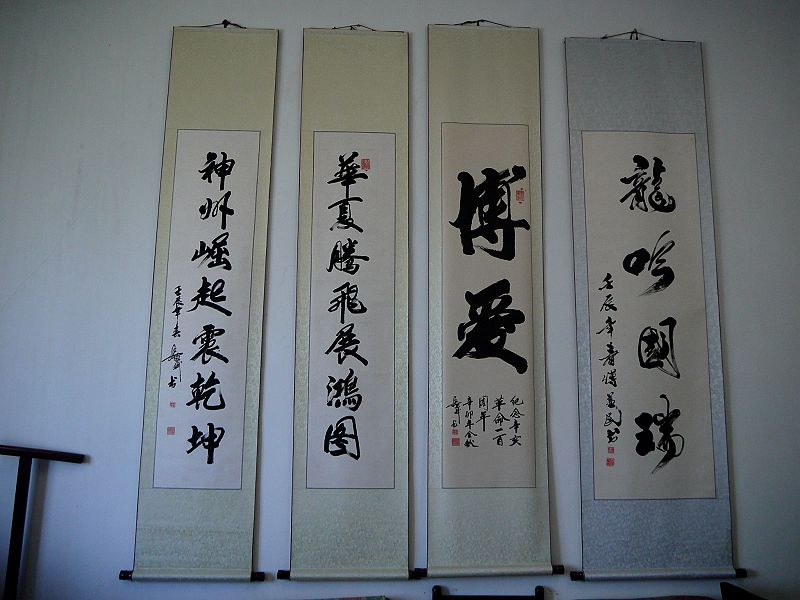 龍吟國瑞
壬辰年春
博愛
纪念辛亥
革命一百
周年
辛卯年金秋
華夏騰飛展鴻图
神州崛起震乾坤
壬辰年春